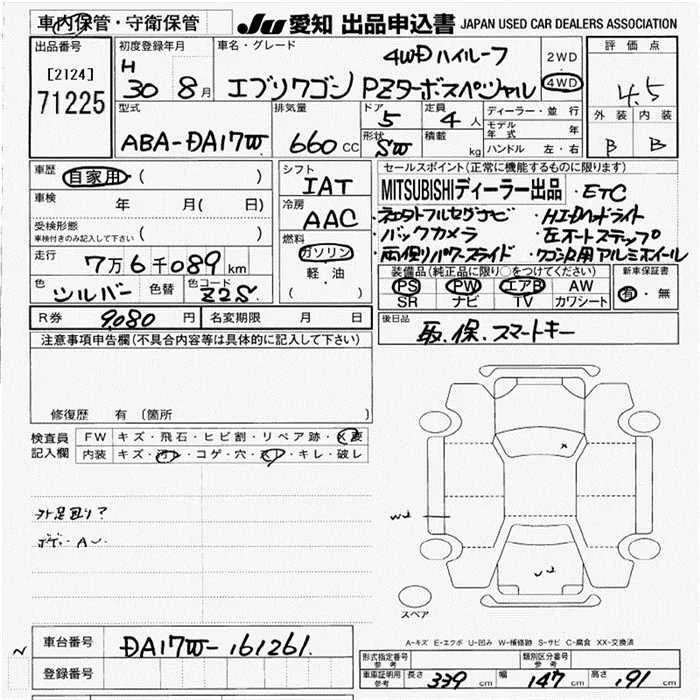 車内保管・守衛保管
JU 愛知 出品申込書 JAPAN USED CAR DEALERS ASSOCIATION
出品番号
[2124]
71225
初度登録年月
H
30 8月
車名・グレード
4WDハイルーフ
エブリワゴン PZターボスペシャル
2WD
4WD
評価点
4.5
外装 内装
B B
型式
ABA-DA17W
排気量
660 CC
ドア
5
定員
4 人
形状
SW
積載
kg
ディーラー・並行
モデル年式 年
ハンドル 左・右
車歴 自家用 ( )
車検 年 月( 日)
受検形態
車検付きのみ記入して下さい ( )
走行 7万6千089km
色 シルバー 色替 色コード Z2S
シフト
IAT
冷房
AAC
燃料
ガソリン
軽・油
( )
セールスポイント(正常に機能するものに限ります)
MITSUBISHIディーラー出品 ・ETC
・ネオタトフルセグナビ ・HIDヘッドライト
・バックカメラ ・左オートステップ
・両側パワースライド ・ワゴンR用アルミホイール
装備品(純正品に限り○をつけてください)
PS PW エアB AW
SR ナビ TV カワシート
新車保証書
有・無
R券 9,080 円 名変期限 月 日
後日品
取.保.スマートキー
注意事項申告欄(不具合内容等は具体的に記入して下さい)
修復歴 有 (箇所 )
検査員記入欄
FW キズ・飛石・ヒビ割・リペア跡・X要
内装 キズ・汚レ・コゲ・穴・スレ・キレ・破レ
外足回り?
ボデー A〜
x
W2
U2
スペア
A-キズ E-エクボ U-凹み W-補修跡 S-サビ C-腐食 XX-交換済
車台番号 DA17W-161261
登録番号
形式指定番号 参考
類別区分番号 参考
車庫証明用 参考 長さ 339 cm 幅 147 cm 高さ 191 cm